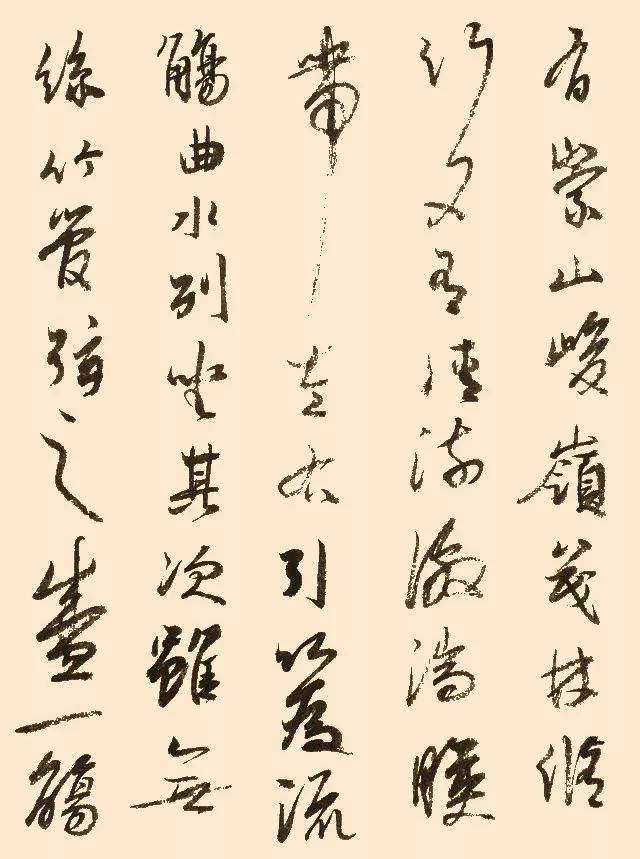 有崇山峻嶺茂林脩
竹又有清流激湍暎
帶左右引以為流
觴曲水列坐其次雖無
絲竹管弦之盛一觴